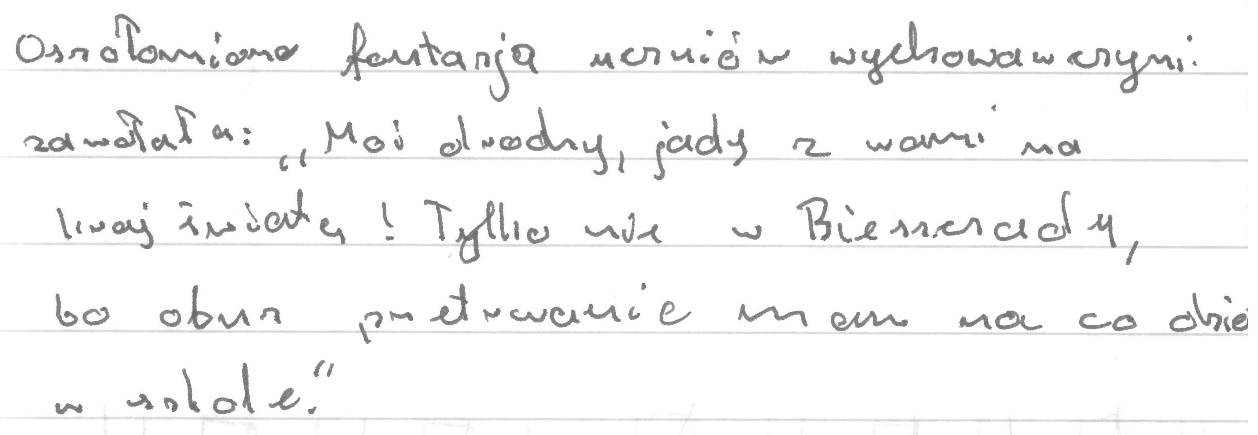 Oszołomiona fantazją uczniów wychowawczyni
zawołała: „Moi drodzy, jadę z wami na
kraj świata! Tylko nie w Bieszczady,
bo obóz przetrwanie mam na co dzie
w szkole."